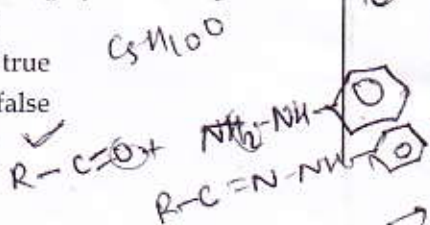 C5H10O
true
false
R-C=O+ NH2-NH-
R-C=N-NH-